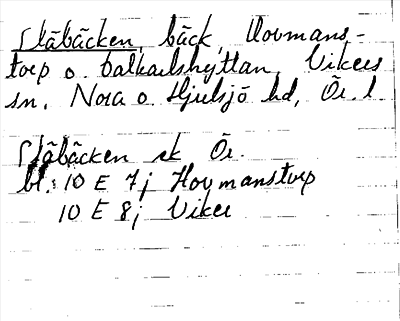 Stäbäcken, bäck, Hovmans-
torp o. Dalkarlshyttan, Vikers
sn. Nora o. Hjulsjö hd, Ör. l
Stäbäcken ek Ör.
bl. 10 E 7j Hovmanstorp
10 E 8j Viker